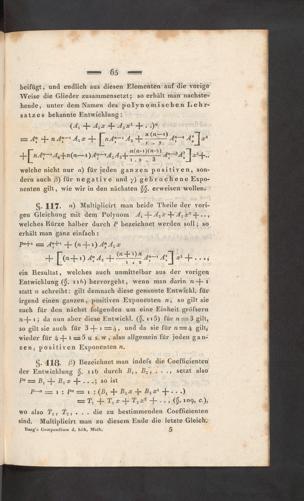 — 65 —
beifügt, und endlich aus diesen Elementen auf die vorige
Weise die Glieder zusammensetzt; so erhält man nachste-
hende, unter dem Namen des polynomischen Lehr-
satzes bekannte Entwicklung:
(A₀ + A₁x + A₂x² + ..)ⁿ
welche nicht nur α) für jeden ganzen positiven, son-
dern auch β) für negative und γ) gebrochene Expo-
nenten gilt, wie wir in den nächsten §§. erweisen wollen.
§. 117. α) Multiplicirt man beide Theile der vori-
gen Gleichung mit dem Polynom A₀ + A₁x + A₂x² + ..,
welches Kürze halber durch P bezeichnet werden soll; so
erhält man ganz einfach:
Pⁿ⁺¹ = A₀ⁿ⁺¹ + (n+1) A₀ⁿ A₁x
ein Resultat, welches auch unmittelbar aus der vorigen
Entwicklung (§. 116) hervorgeht, wenn man darin n + 1
statt n schreibt: gilt demnach diese genannte Entwickl. für
irgend einen ganzen, positiven Exponenten n, so gilt sie
auch für den nächst folgenden um eine Einheit größern
n + 1; da nun aber diese Entwickl. (§. 115) für n = 3 gilt,
so gilt sie auch für 3 + 1 = 4, und da sie für n = 4 gilt,
wieder für 4 + 1 = 5 u. s. w., also allgemein für jeden gan-
zen, positiven Exponenten n.
§. 118. β) Bezeichnet man indeſs die Coefficienten
der Entwicklung §. 116 durch B₁, B₂, ...., setzt also
Pⁿ = B₁ + B₂x + ....; so ist
P⁻ⁿ = 1 : Pⁿ = 1 : (B₁ + B₂x + B₃x² + ...)
= T₁ + T₂x + T₃x² + .... (§. 109, c.),
wo also T₁, T₂, .... die zu bestimmenden Coefficienten
sind. Multiplicirt man zu diesem Ende die letzte Gleich.
Burg's Compendium d. höh. Math. 5